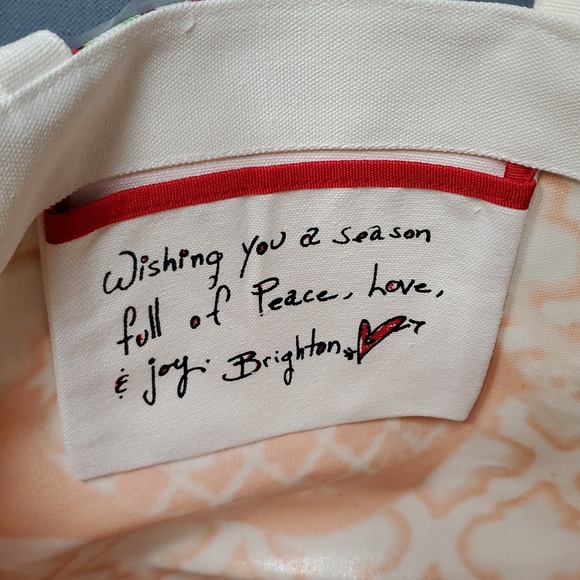 Wishing you a season
full of Peace, Love,
& joy. Brighton